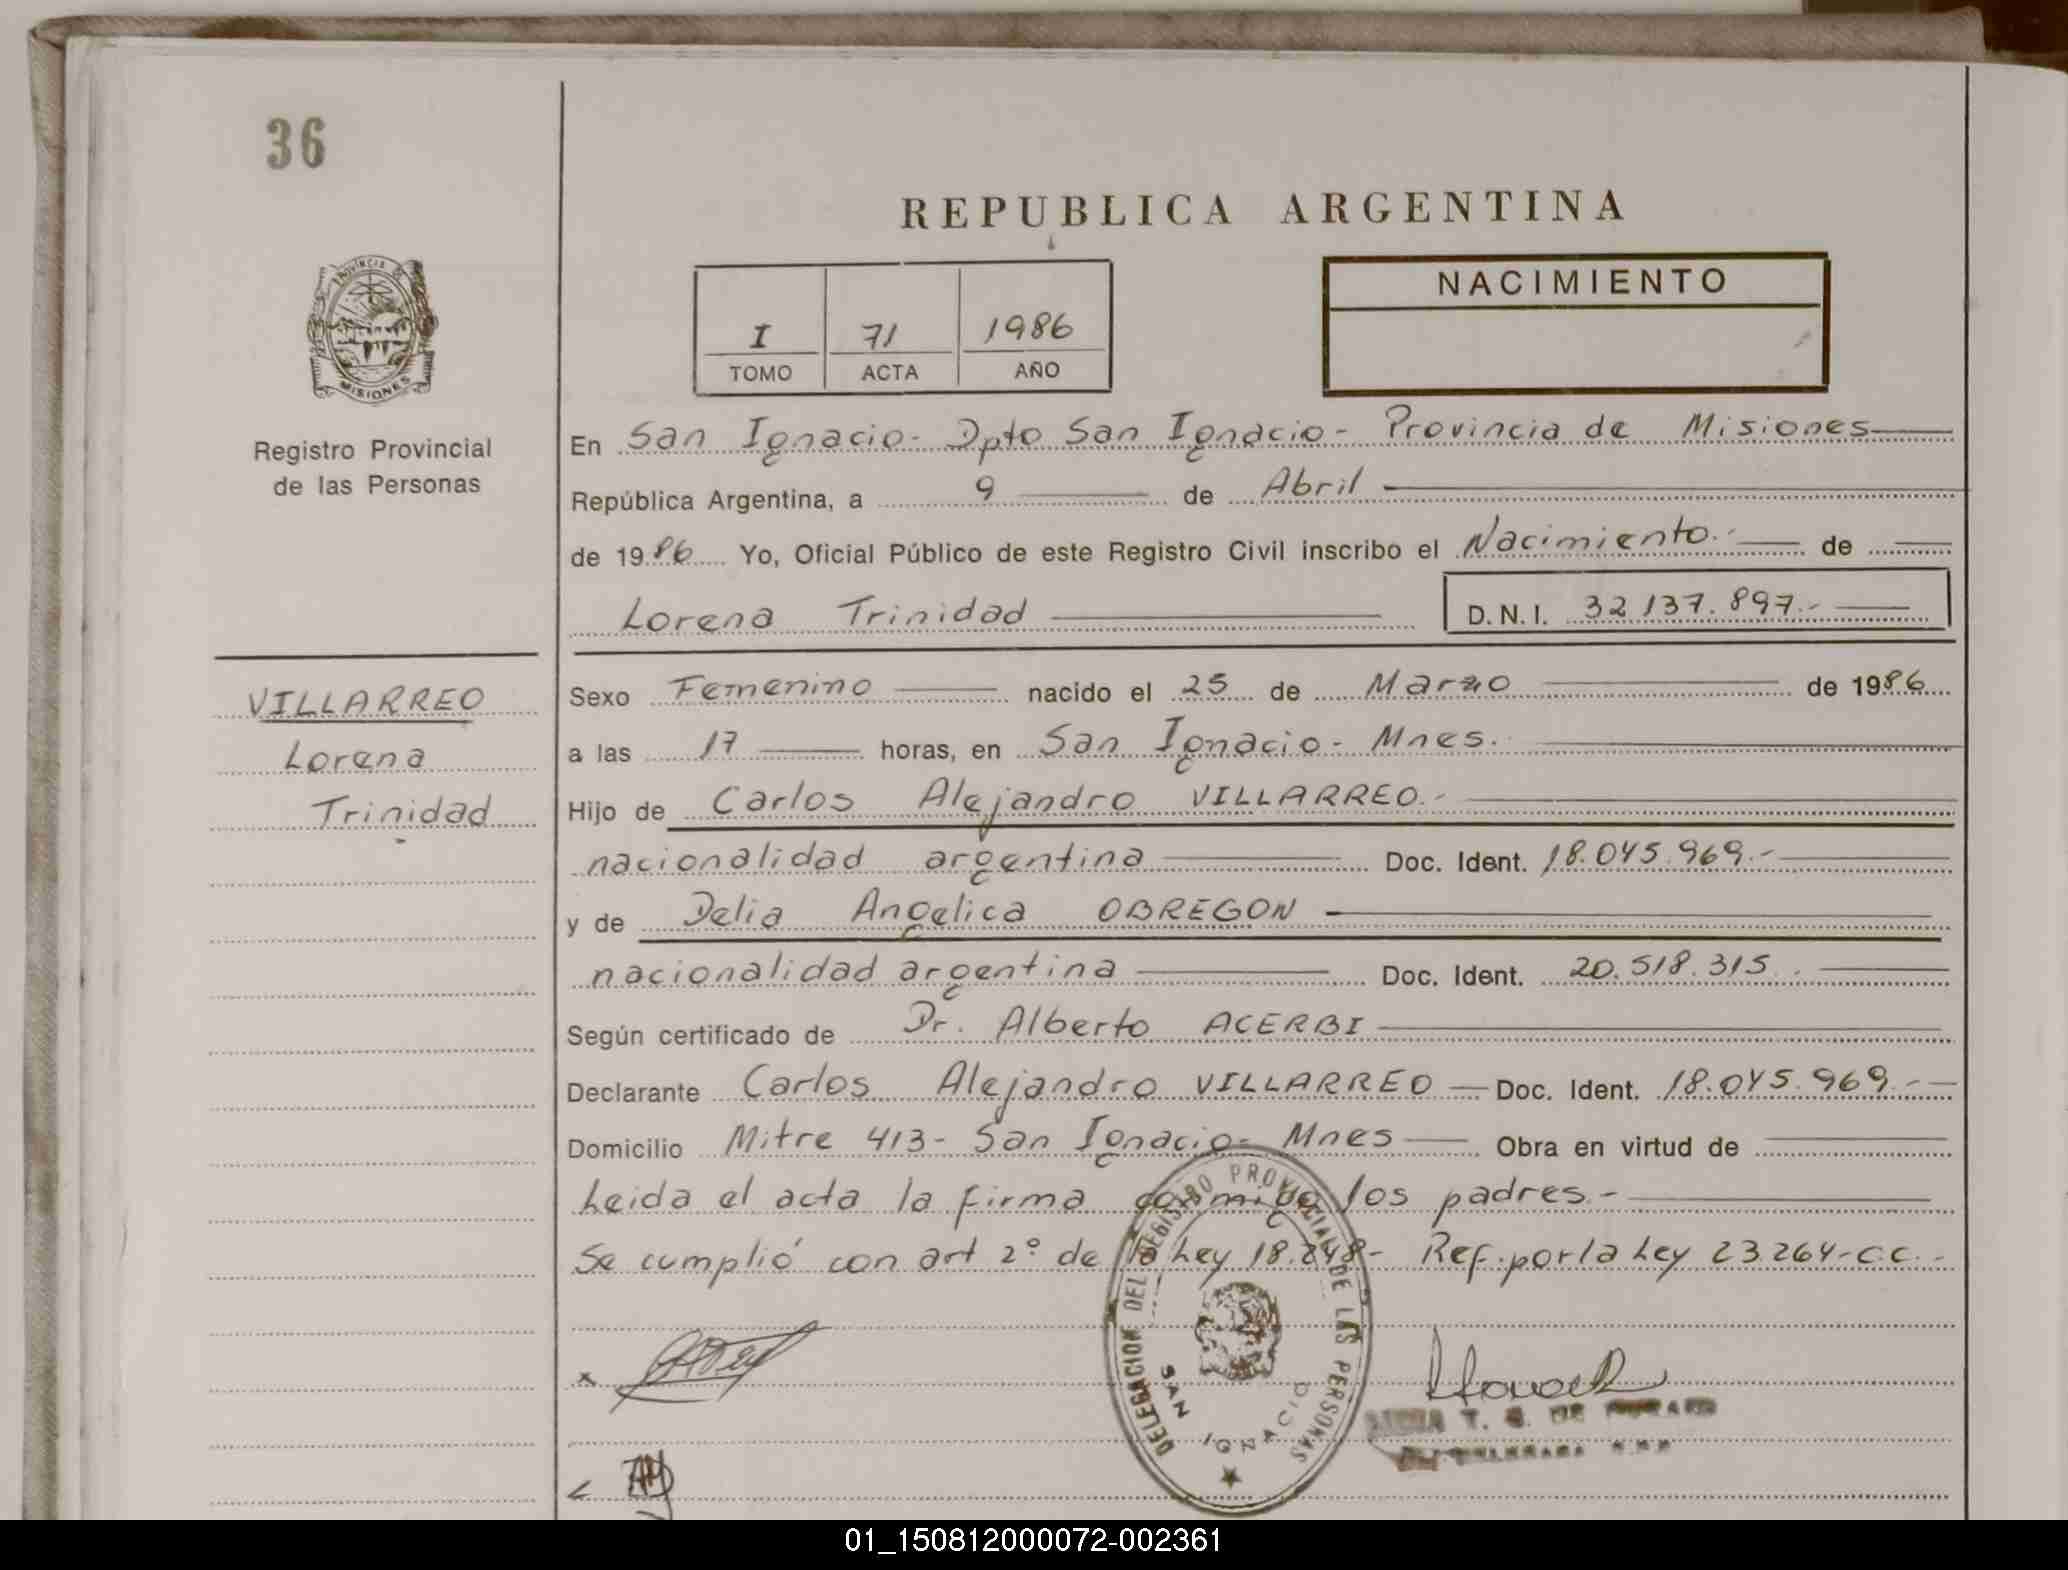 36
REPUBLICA ARGENTINA
PROVINCIA DE
MISIONES
Registro Provincial
de las Personas
I 71 1986
TOMO ACTA AÑO
NACIMIENTO
En San Ignacio - Dpto San Ignacio - Provincia de Misiones
República Argentina, a 9 de Abril
de 1986 Yo, Oficial Público de este Registro Civil inscribo el Nacimiento.- de
Lorena Trinidad D.N.I. 32 137.897.-
VILLARREO
Lorena
Trinidad
Sexo Femenino nacido el 25 de Marzo de 1986
a las 17 horas, en San Ignacio - Mnes.
Hijo de Carlos Alejandro VILLARREO.-
nacionalidad argentina Doc. Ident. 18.045.969.-
y de Delia Angelica OBREGON
nacionalidad argentina Doc. Ident. 20.518.315.
Según certificado de Dr. Alberto ACERBI
Declarante Carlos Alejandro VILLARREO Doc. Ident. 18.045.969.-
Domicilio Mitre 413 - San Ignacio - Mnes Obra en virtud de
Leida el acta la firma conmigo los padres.-
Se cumplió con art 2º de la Ley 18.248- Ref. por la Ley 23264-C.C.-
DELEGACION DEL REGISTRO PROVINCIAL DE LAS PERSONAS
SAN IGNACIO
T. DE
01_150812000072-002361